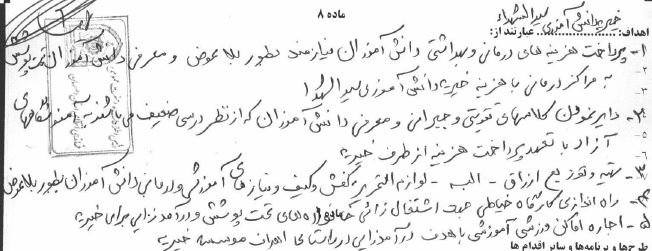 خیریه دانش آموزی سیدالشهداء
ماده ۸
اهداف: عبارتند از:
۱- پرداخت هزینه های درمانی و بهداشتی دانش آموزان نیازمند بطور بلاعوض و معرفی دانش آموزان تحت پوشش
۲-
به مراکز درمانی با هزینه خیریه دانش آموزی سیدالشهدا
۳-
۲- دایر نمودن کلاسهای تقویتی و جبرانی و معرفی دانش آموزان که از نظر درسی ضعیف می باشند به آموزشگاههای
۵-
آزاد با تعهد پرداخت هزینه از طرف خیریه
۶-
۳- تهیه و توزیع ارزاق - البسه - لوازم التحریر کفش و کیف و نیازهای آموزشی و درمانی دانش آموزان بطور بلاعوض
۴- راه اندازی کارگاه خیاطی جهت اشتغال زائی خانواده های تحت پوشش و درآمدزایی برای خیریه
۵- اجاره اماکن ورزشی آموزشی با هدف درآمدزایی در راستای اهداف موسسه خیریه
طرح‌ها و برنامه‌ها و سایر اقدام ها